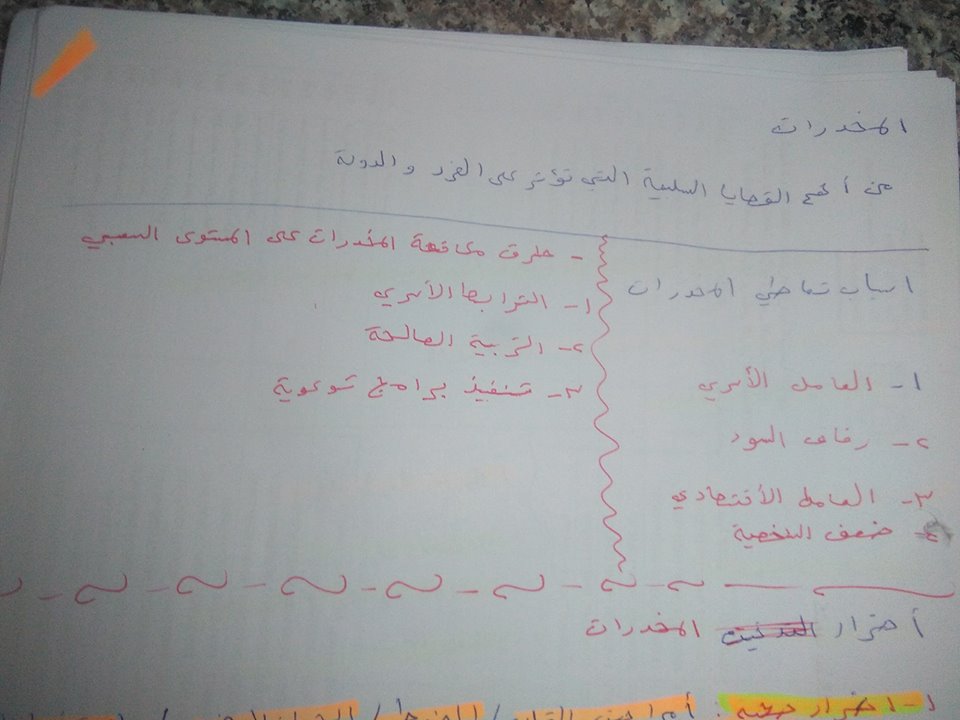 المخدرات
من أهم القضايا السلبية التي تؤثر على الفرد والدولة
اسباب تعاطي المخدرات
1- العامل الأسري
2- رفاق السوء
3- العامل الأقتصادي
4- ضعف الشخصية
- طرق مكافحة المخدرات على المستوى الشعبي
1- الترابط الأسري
2- التربية الصالحة
3- تنفيذ برامج توعوية
أضرار التدخين المخدرات
1- اضرار صحية : أمراض القلب / الضغط /